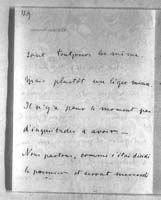 119
sont toujours les même
mais plutôt un léger mieux.
Il n'y a pour le moment pas
d'inquiétudes à avoir —
Nous partons, comme c'était décidé
le premier et serons mercredi